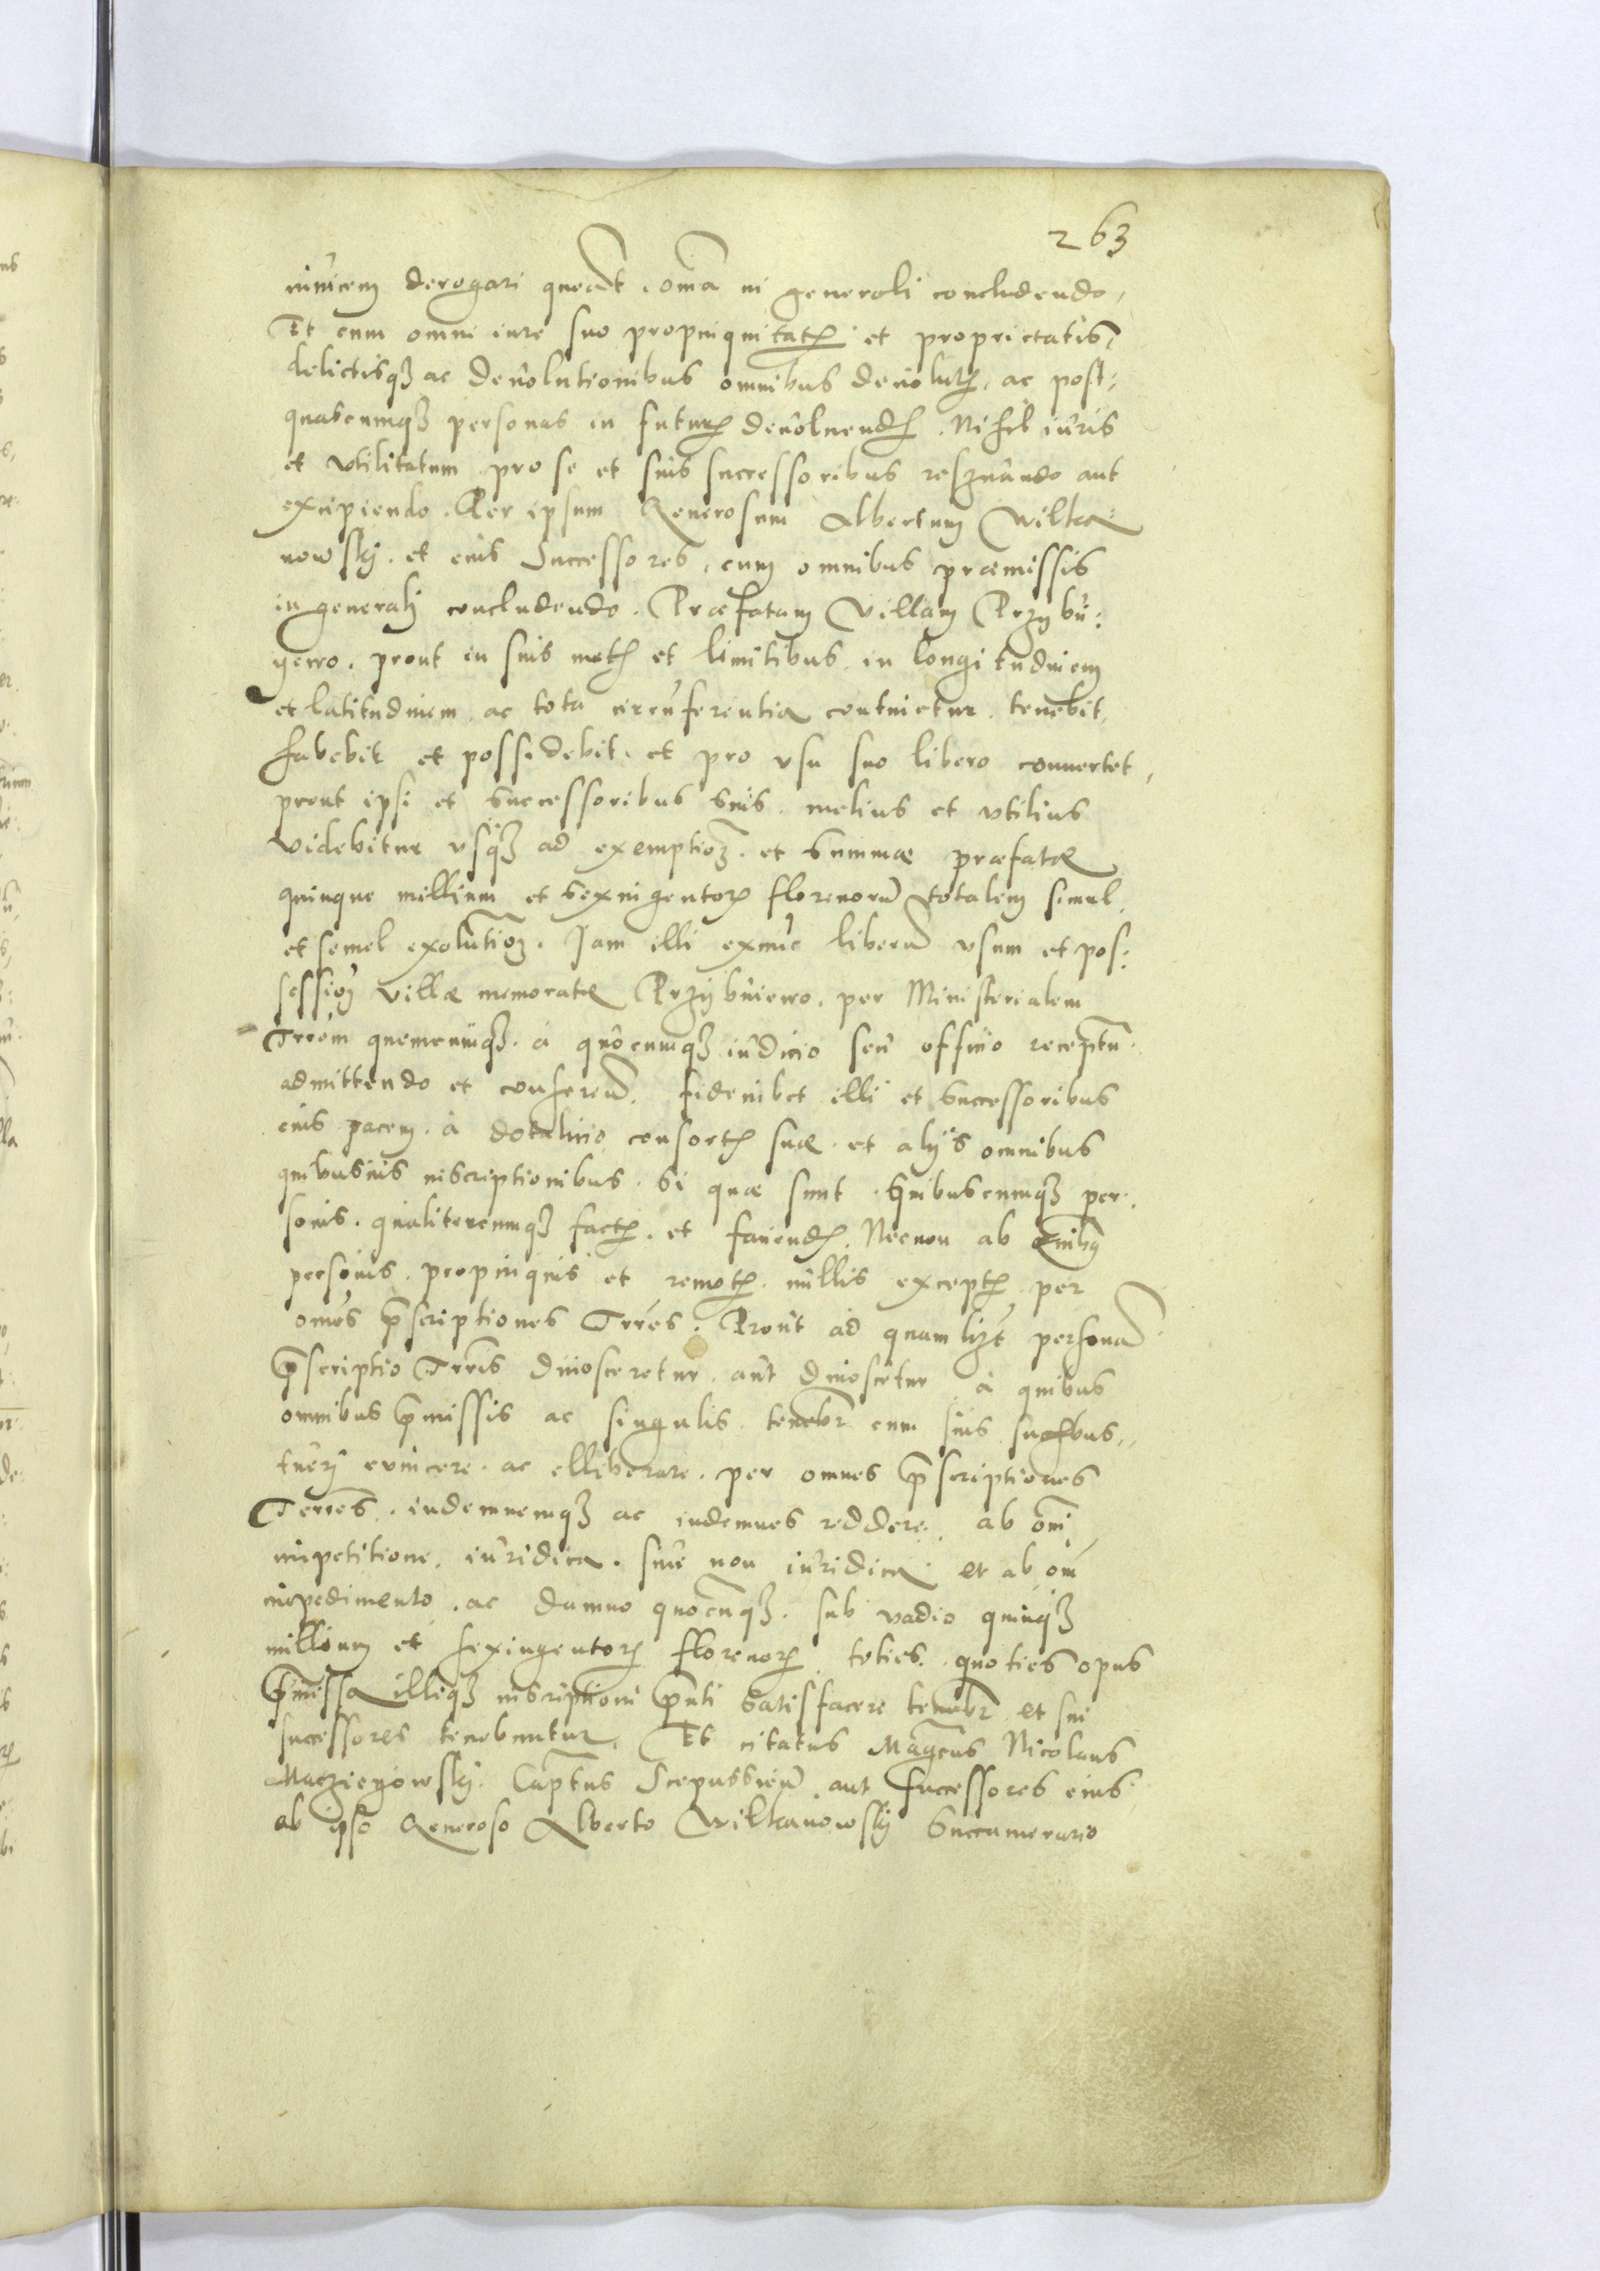 263
inuicem derogari queat. oma in generali concludendo,
Et cum omni iure suo propinquitatis et proprietatis,
delictisqȝ ac deuolutionibus omnibus deuolutis, ac post=
quascunqȝ personas in futurum deuoluendis. Nihil iuris
et vtilitatum pro se et suis successoribus reseruando aut
excipiendo. Per ipsum Generosum Albertum Wilka=
nowskij. et eius Successores, cum omnibus præmissis
in generalj concludendo. Præfatam Villam Przybu:
gewo. prout in suis metis et limitibus in longitudinem
et latitudinem ac tota circūferentia continetur. tenebit,
habebit et possidebit. et pro vsu suo libero conuertet,
prout ipsi et successoribus suis melius et vtilius
videbitur vsqȝ ad exemptioȝ. et summæ præfatæ
quinque millium et sexingentorꝝ florenorū totalem simul
et semel exolutioȝ. Jam illi exnūc liberū vsum et pos:
sessioȝ villæ memoratæ per Ministerialem
Trrēm quemcunqȝ. à quocunqȝ iudicio seu officio receptū.
admittendo et conferen. fideiubet illi et successoribus
eius pacem. à dotalicio consortis suæ et alijs omnibus
quibusuis inscriptionibus. si quæ sunt quibuscunqȝ per:
sonis. qualitercunqȝ factis. et faciendis. Necnon ab
personis. propinquis et remotis. nullis exceptis per
omēs p̄scriptiones Trrēs. Prout ad quam lizt personā
p̄scriptio Trrēis dinosceretur. aut dinoscetur à quibus
omnibus p̄missis ac singulis tenebr cum suis sucbus,
tuerj euincere. ac elliberare. per omnes p̄scriptiones
Terrēs. indemnemqȝ ac indemnes reddere. ab omī
impetitione. iuridica. siue non iuridica et ab omi
impedimento. ac damno quocūnqȝ. sub vadio quinqȝ
millium et sexingentorꝝ florenorꝝ toties. quoties opus
p̄missa illiqȝ inscriptioni p̄nti satisfacere tenebr et sui
successores tenebuntur. Et citatus Magcus Nicolaus
Macziegowskij. Captus Scepussien aut successores eius
ab ipso Generoso Alberto Wilkanowskij Succamerario